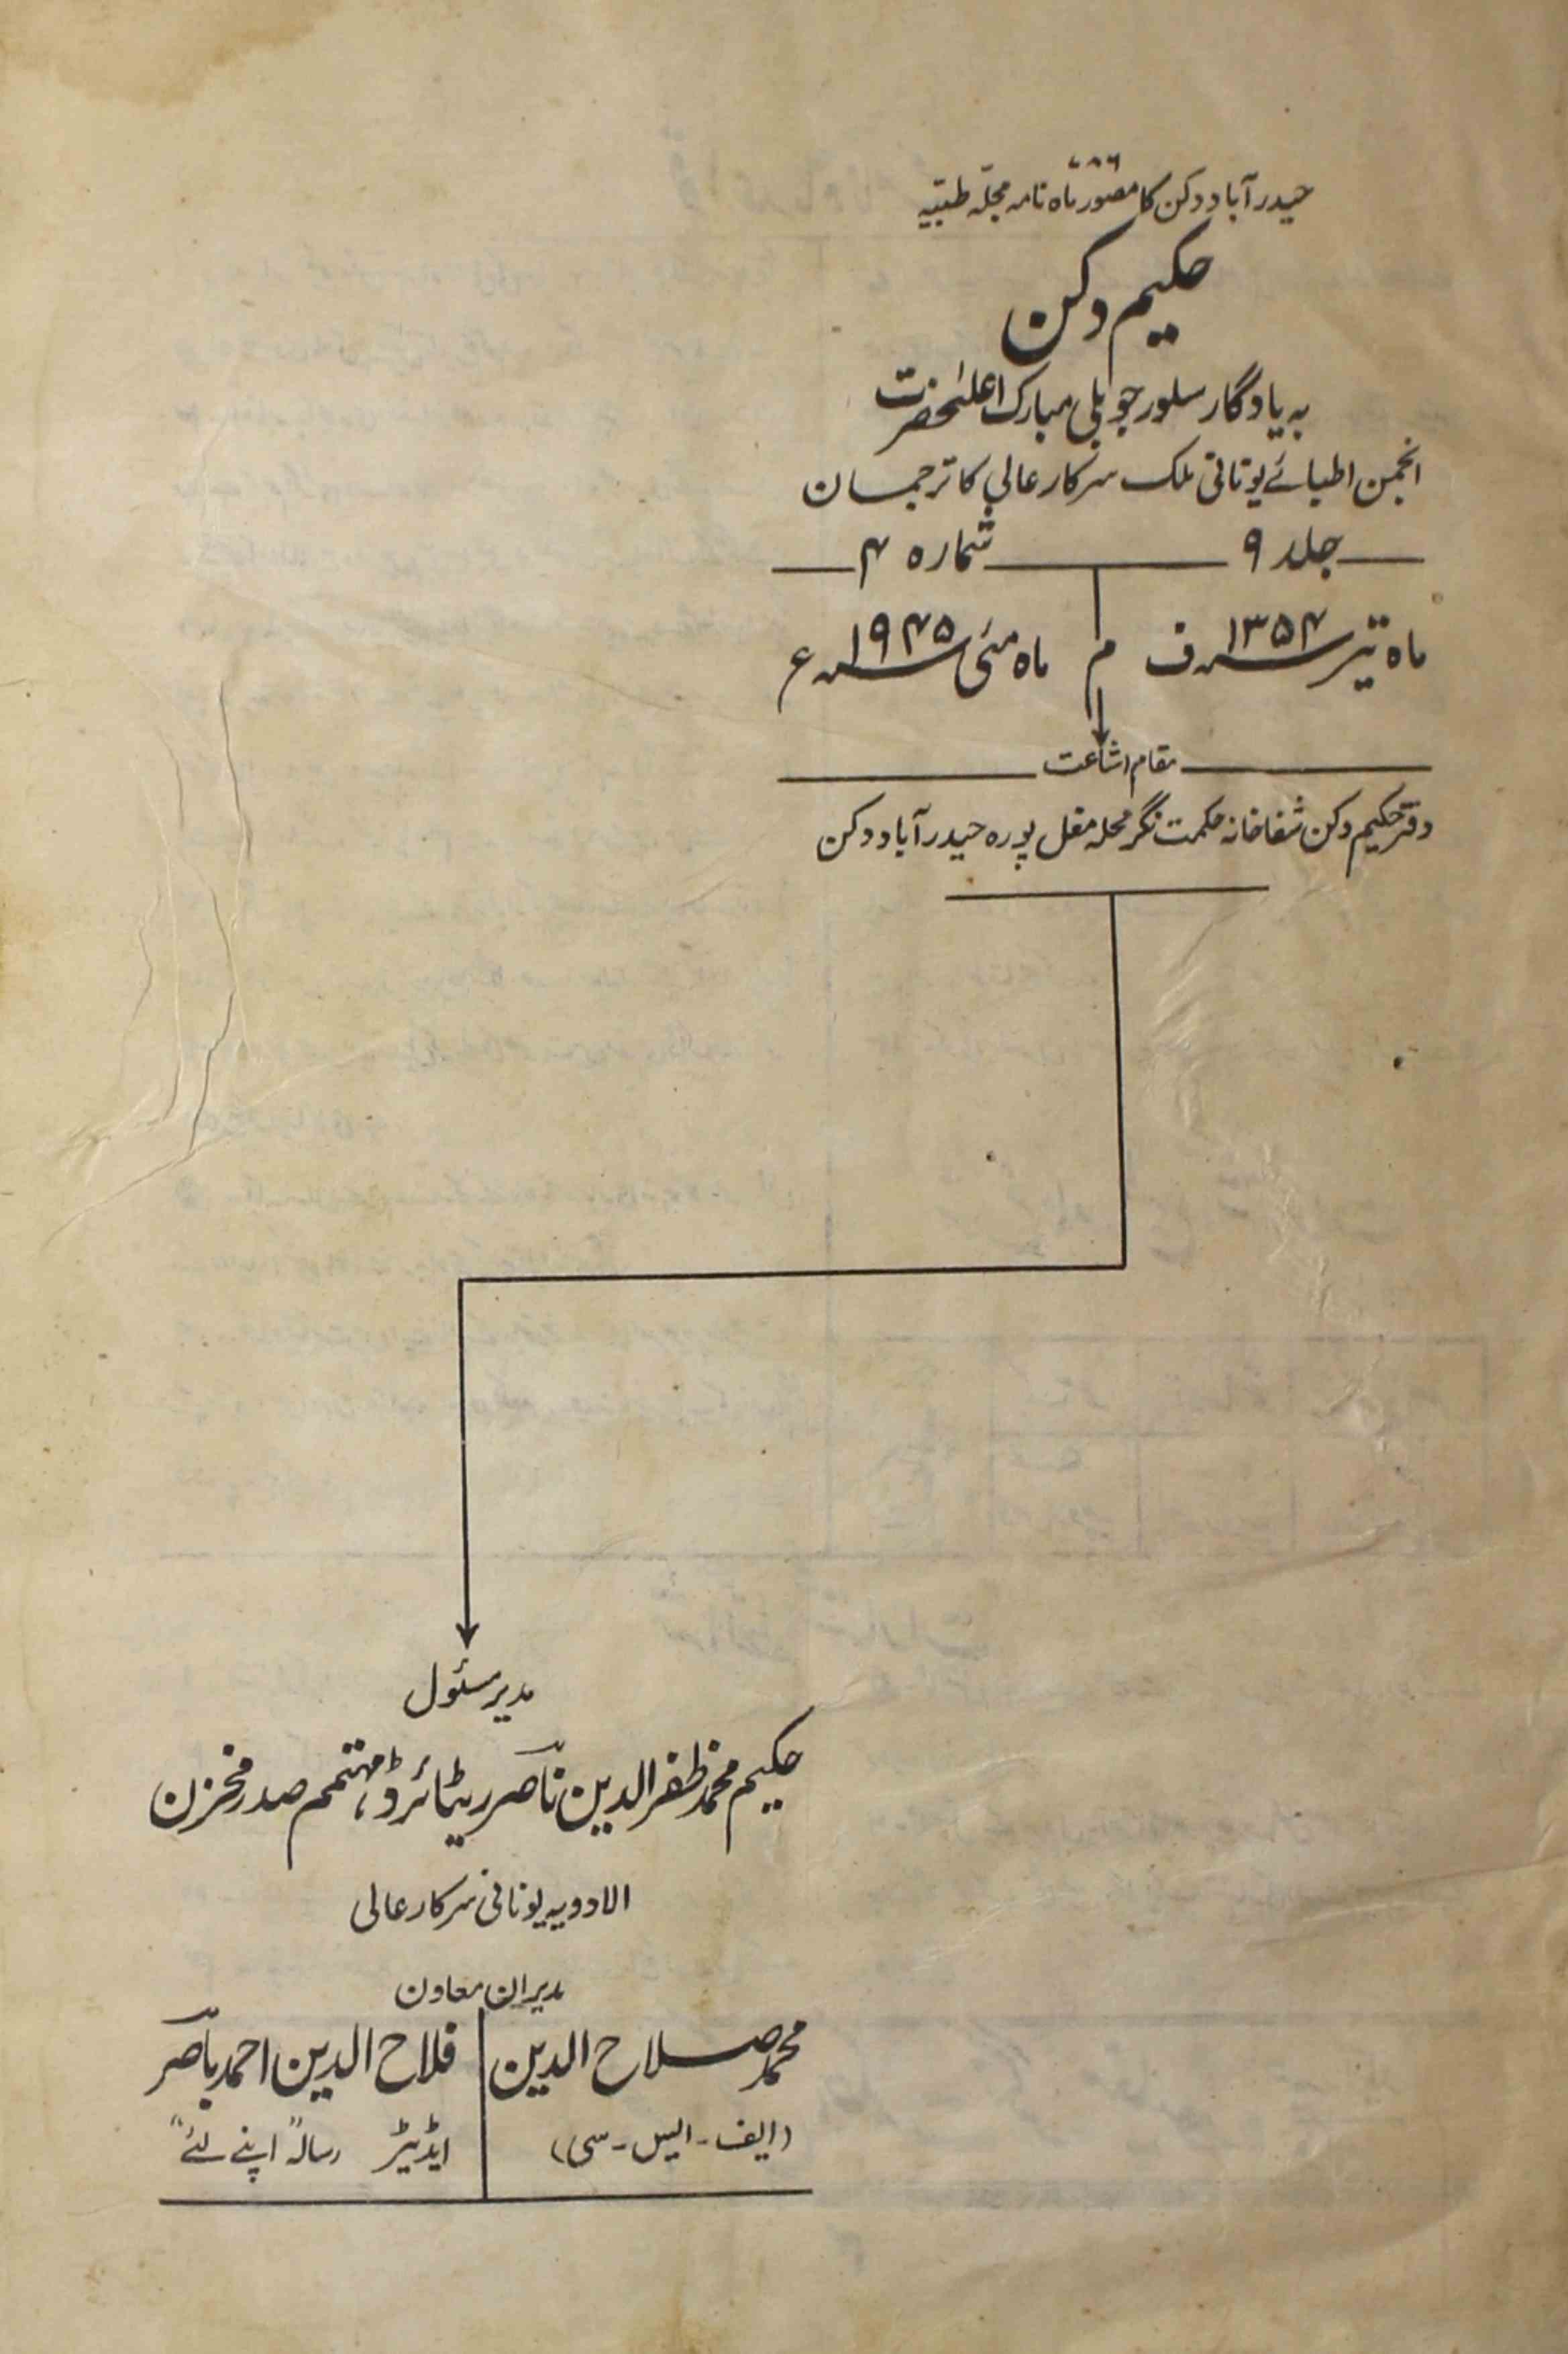 ۷۸۶
حیدرآباد دکن کا مصور ماہ نامہ مجلہ طبیّہ
حکیم دکن
بہ یادگار سلور جوبلی مبارک اعلیٰحضرت
انجمن اطبائے یونانی ملک سرکار عالی کا ترجمان
جلد ۹ شمارہ ۴
ماہ تیر ۱۳۵۴ ف م ماہ مئی ۱۹۴۵ ء
مقام اشاعت
دفتر حکیم دکن شفاخانہ حکمت نگر محلہ مغل پورہ حیدرآباد دکن
مدیر مسئول
حکیم محمد ظفر الدین ناصر ریٹائرڈ، مہتمم صدر مخزن
الادویہ یونانی سرکار عالی
مدیران معاون
محمد صلاح الدین
(ایف - ایس - سی)
فلاح الدین احمد ناصر
ایڈیٹر رسالہ "اپنے لئے"